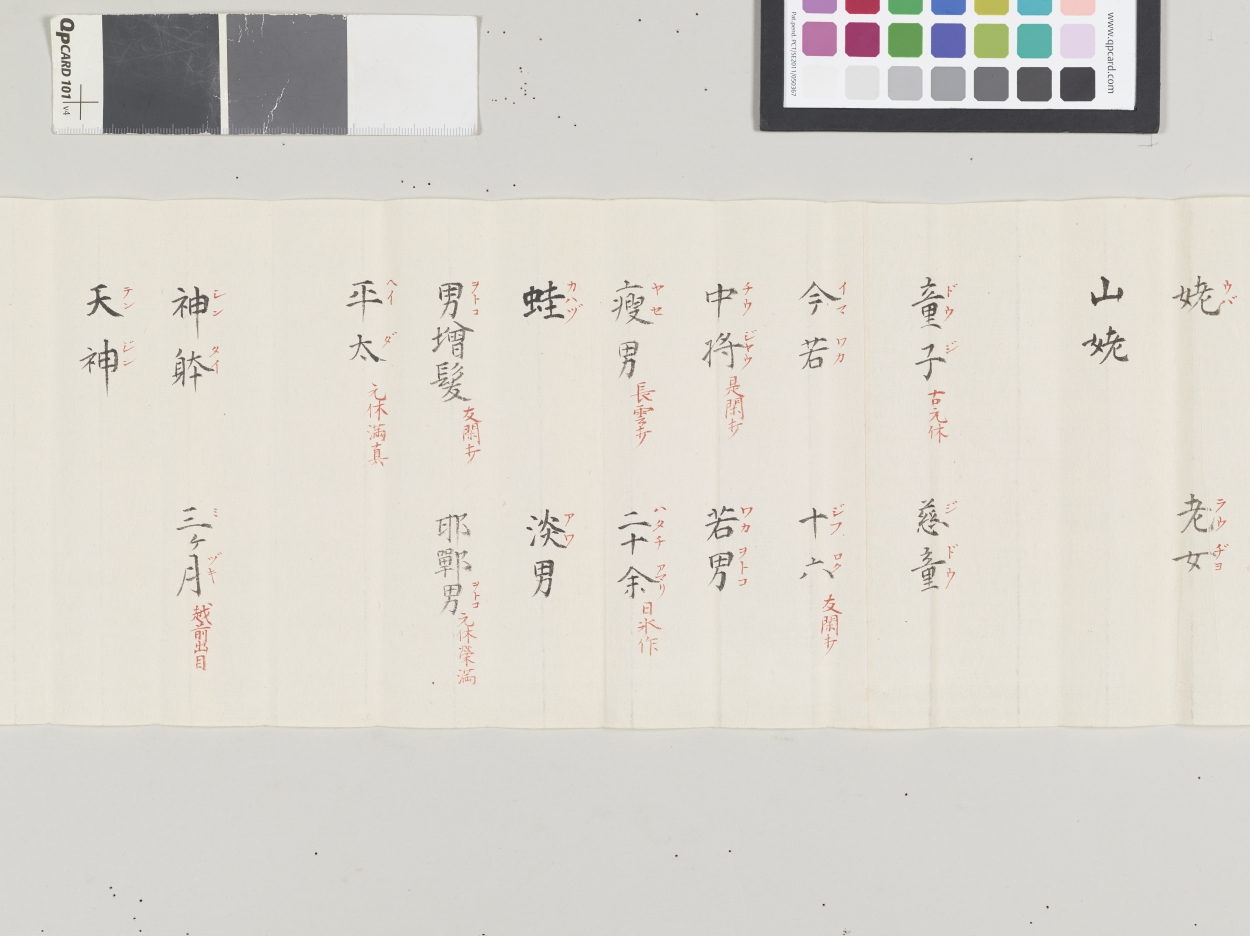 QPCARD 101 v4
www.qpcard.com
Pat.pend. PCT/SE2011/050367
姥 ウバ
老女 ラウヂヨ
山姥
童子 ドウジ 古元休
慈童 ジドウ
今若 イマワカ
十六 ジフロク 友閑打
中将 チウジヤウ 是閑打
若男 ワカヲトコ
瘦男 ヤセ 長雲打
二十余 ハタチアマリ 日氷作
蛙 カハヅ
淡男 アワ
男増髪 ヲトコ 友閑打
耶鄲男 ヲトコ 元休榮満
平太 ヘイダ 元休満真
神躰 シンタイ
三ヶ月 ミヅキ 越前出目
天神 テンジン